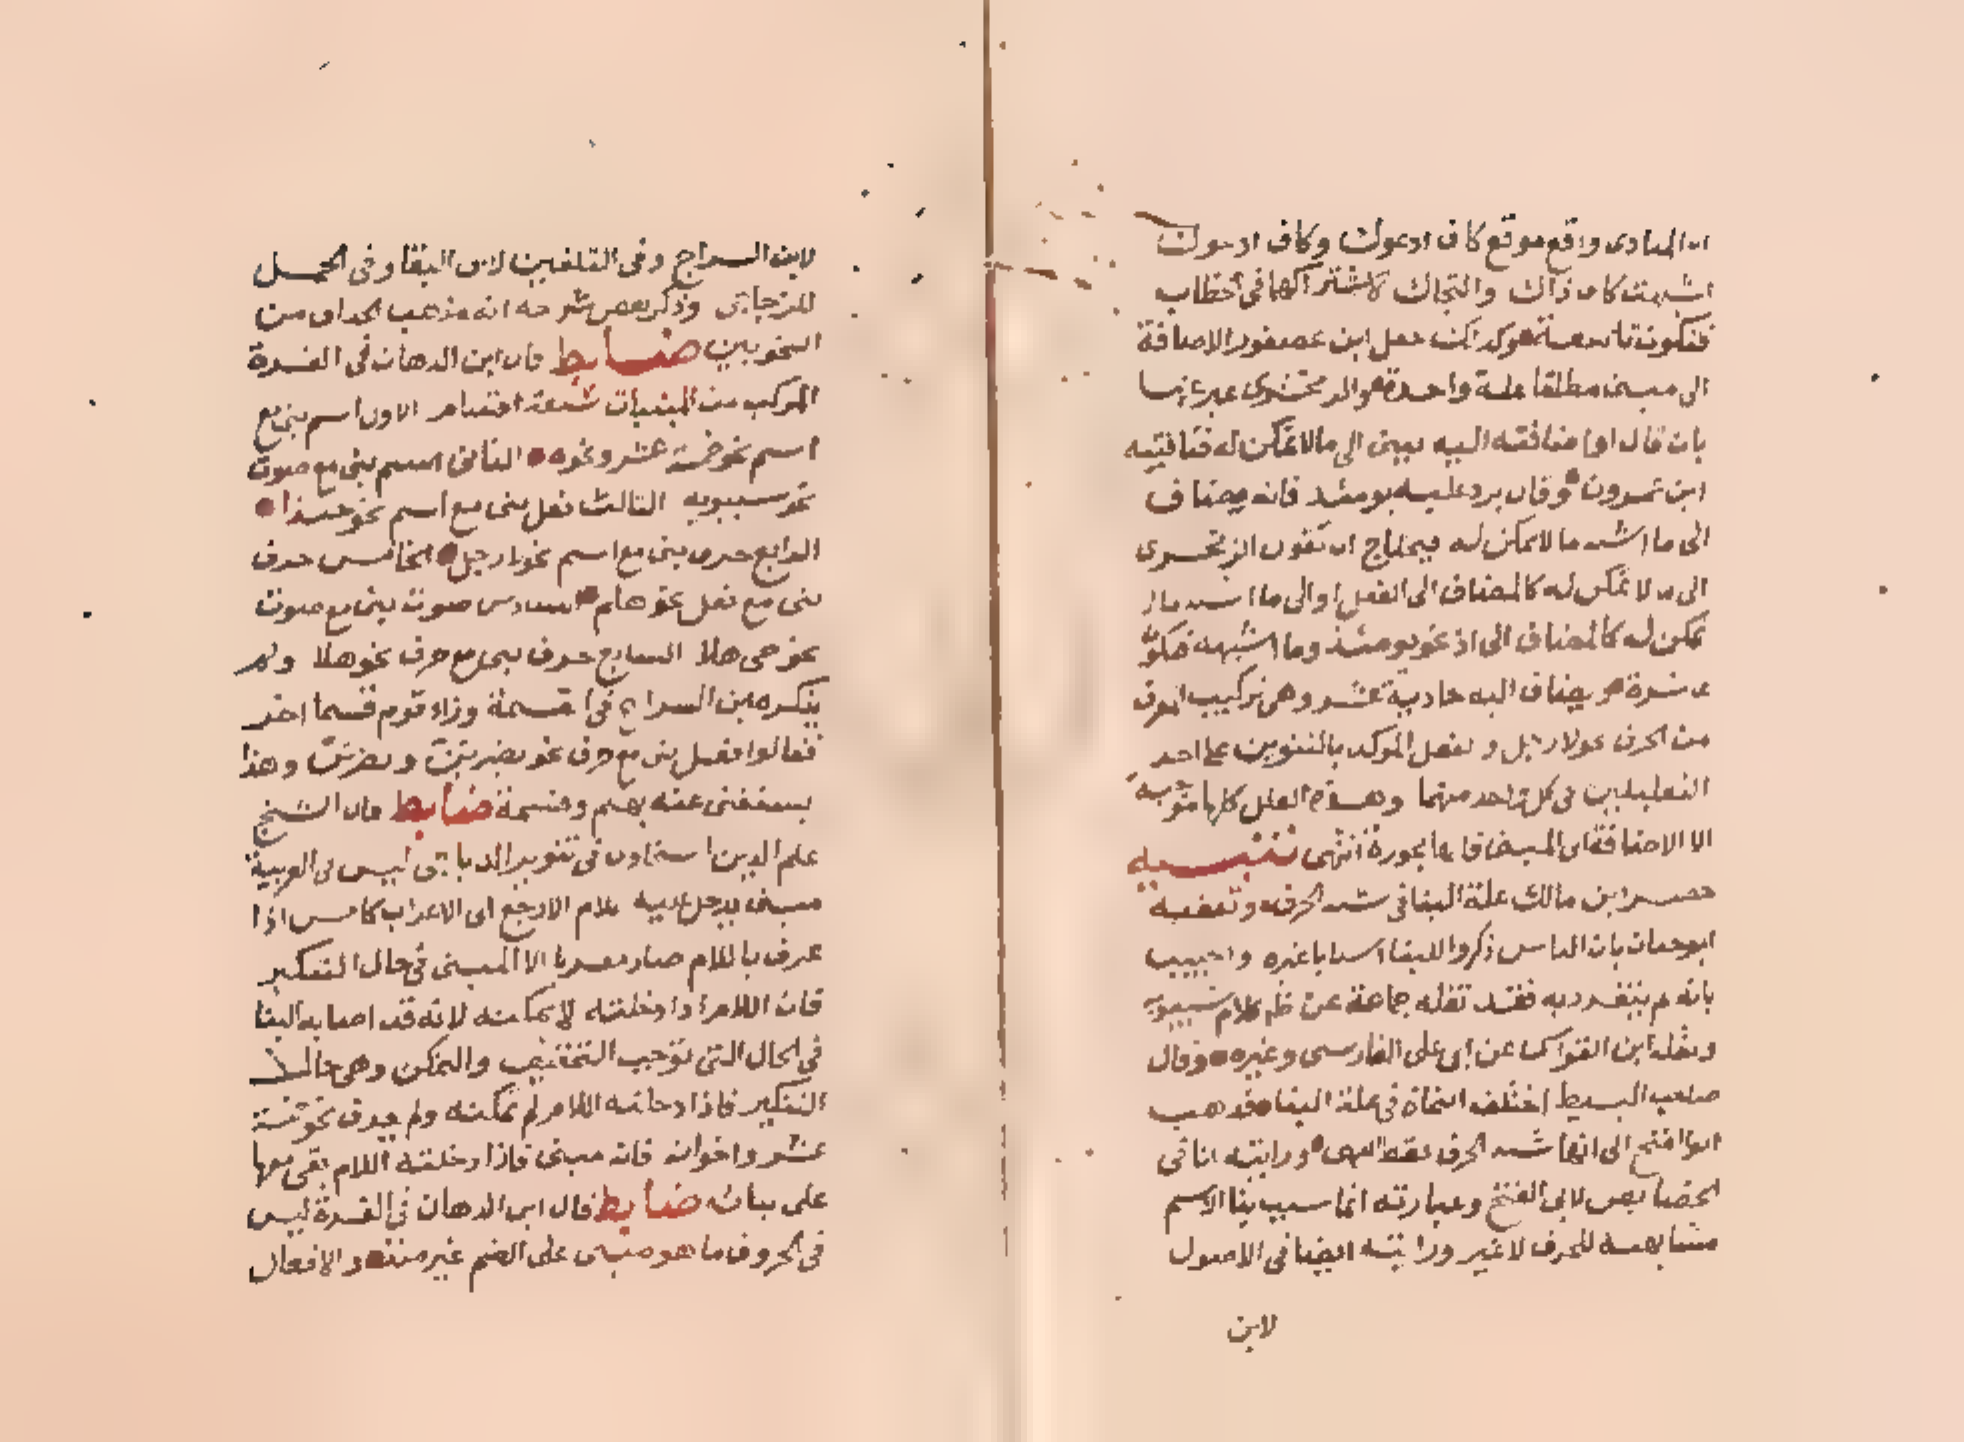 ان المنادى واقع موقع كاف ادعوك وكاف ادعوك
اشبهت كاف ذاك والنجاك لاشتراكهما في الخطاب
فتكون تاسعة هو كذا لكن جعل ابن عصفور الاضافة
الى مبنى مطلقا علة واحدة والزمخشرى عبر عنها
بان قال او اضافته اليه يعنى الى ما لا تمكن له فناقشه
ابن عمرون وقال يرد عليه يومئذ فانه مضاف
الى ما اشبه ما لا تمكن له فيحتاج ان تقول الزمخشرى
الى ما لا تمكن له كالمضاف الى الفعل او الى ما اشبه ما لا
تمكن له كالمضاف الى اذ نحو يومئذ وما اشبهه فتكون
عاشرة ويضاف اليه حادية عشر وهى تركيب الحرف
من الحرف نحو لا رجل والفعل المؤكد بالنون على احد
التعليلين في كل واحد منهما وهذه العلل كلها موجبة
الا الاضافة الى المبنى فانها مجوزة انتهى تنبيه
حصر ابن مالك علة البنا في شبه الحرف وتعقبه
ابو حيان بان الناس ذكروا للبنا اسبابا غيره واجيب
بانه لم ينفرد به فقد نقله جماعة عن ظاهر كلام سيبويه
ونقله ابن القواس عن ابى على الفارسى وغيره وقال
صاحب البسيط اختلف النحاة في علة البنا فذهب
ابو الفتح الى انها شبه الحرف فقط انتهى ورايته انا في
الخصايص لابى الفتح وعبارته انما سبب بنا الاسم
مشابهته للحرف لا غير ورايته ايضا في الاصول
لابن
لابن السراج وفى التلقين لابى البقا وفى الجمل
للزجاجى وذكر بعض شرحه انه مذهب الحذاق من
النحويين ضابط قال ابن الدهان في الغرة
المركب من المبنيات سبعة اقسام الاول اسم بنى مع
اسم نحو خمسة عشر ونحوه الثانى اسم بنى مع صوت
نحو سيبويه الثالث فعل بنى مع اسم نحو حبذا
الرابع حرف بنى مع اسم نحو لا رجل الخامس حرف
بنى مع فعل نحو هلم السادس صوت بنى مع صوت
نحو حى هلا السابع حرف بنى مع حرف نحو هلا ولم
يذكره ابن السراج في قسمة وزاد قوم قسما اخر
فقالوا فعل بنى مع حرف نحو يضربن وتضربن وهذا
يستغنى عنه بهم وقسمة ضابط قال الشيخ
علم الدين السخاوى في تنوير الدياجى ليس فى العربية
مبنى يدخل عليه اللام الا رجع الى الاعراب كامس اذا
عرف باللام صار معربا الا المبنى في حال التنكير
فان اللام اذا دخلته لا تمكنه لانه قد اصابه البنا
في الحال التى توجب التخفيف والتمكن وهى حال
التنكير فاذا دخلته اللام لم تمكنه ولم يعرف نحو خمسة
عشر واخواته فانه مبنى فاذا دخلته اللام بقى معها
على بنائه ضابط قال ابن الدهان في الغرة ليس
في الحروف ما هو مبنى على الضم غير منذ والافعال